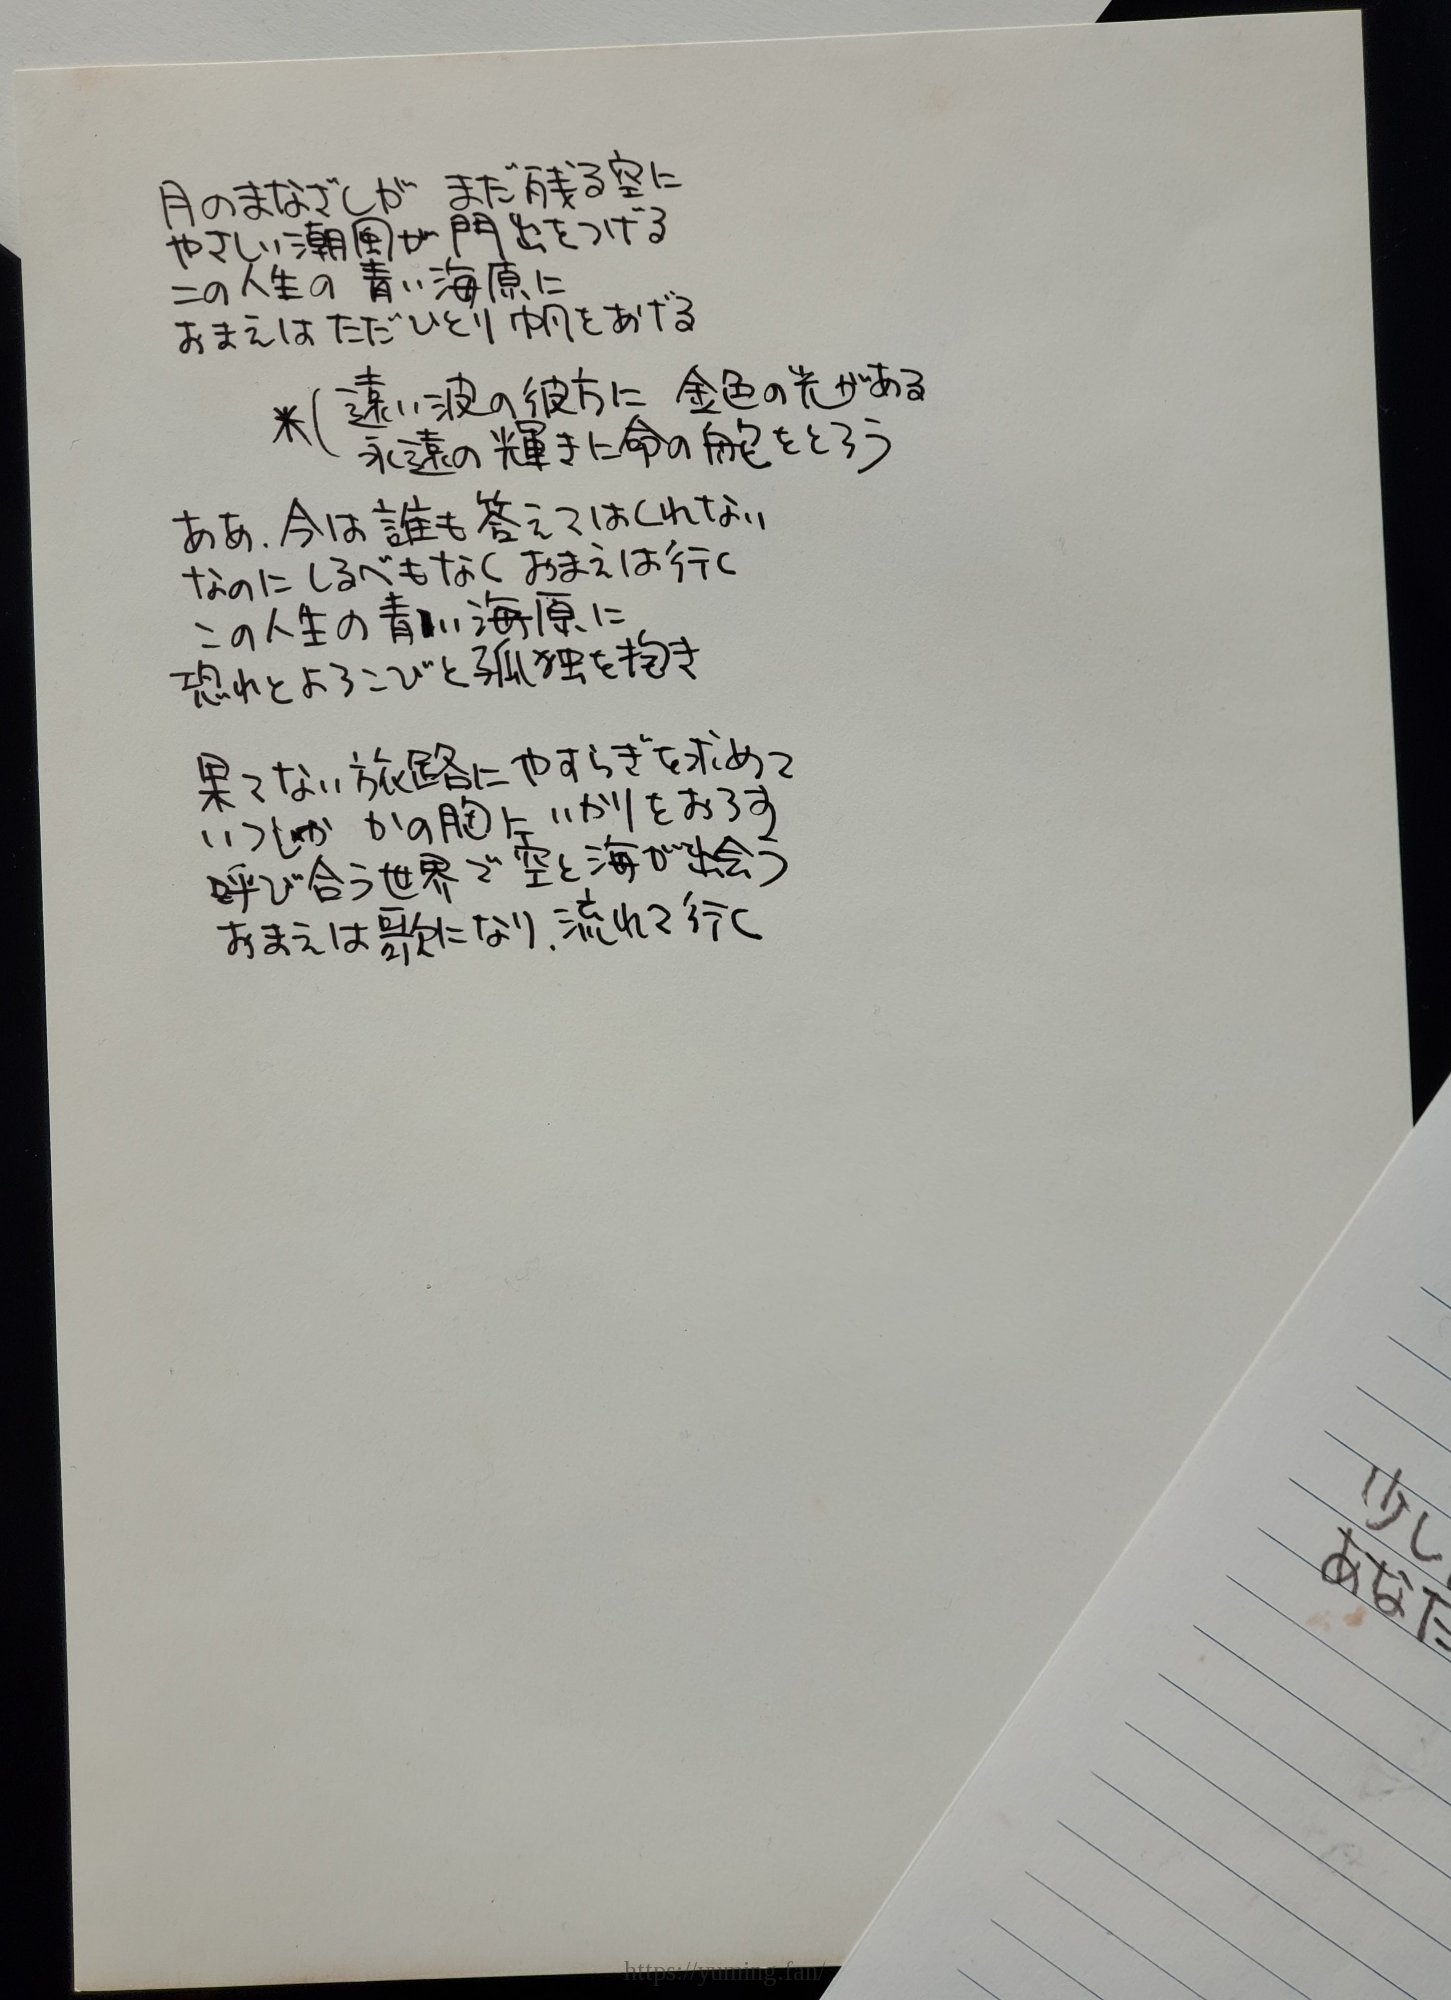 月のまなざしが まだ残る空に
やさしい潮風が 門出をつげる
この人生の 青い海原に
おまえは ただひとり 帆をあげる
*( 遠い波の彼方に 金色の光がある
永遠の輝きに命の舵をとろう
ああ、今は誰も答えてはくれない
なのにしるべもなく おまえは行く
この人生の青い海原に
恐れとよろこびと孤独を抱き
果てない旅路にやすらぎを求めて
いつしか かの胸に いかりをおろす
呼び合う世界で 空と海が出会う
おまえは歌になり、流れて行く
少し
あなた
https://yuming.fan/